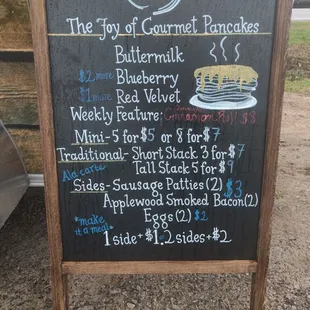 The Joy of Gourmet Pancakes
Buttermilk
$2 more Blueberry
$1 more Red Velvet
Weekly Feature: Cinnamon Roll $8
Mini-5 for $5 or 8 for $7
Traditional-Short Stack 3 for $7
Ala carte Tall Stack 5 for $9
Sides-Sausage Patties (2) $3
Applewood Smoked Bacon (2)
Eggs (2) $2
*make it a meal*
1 side+$1.2 sides+$2